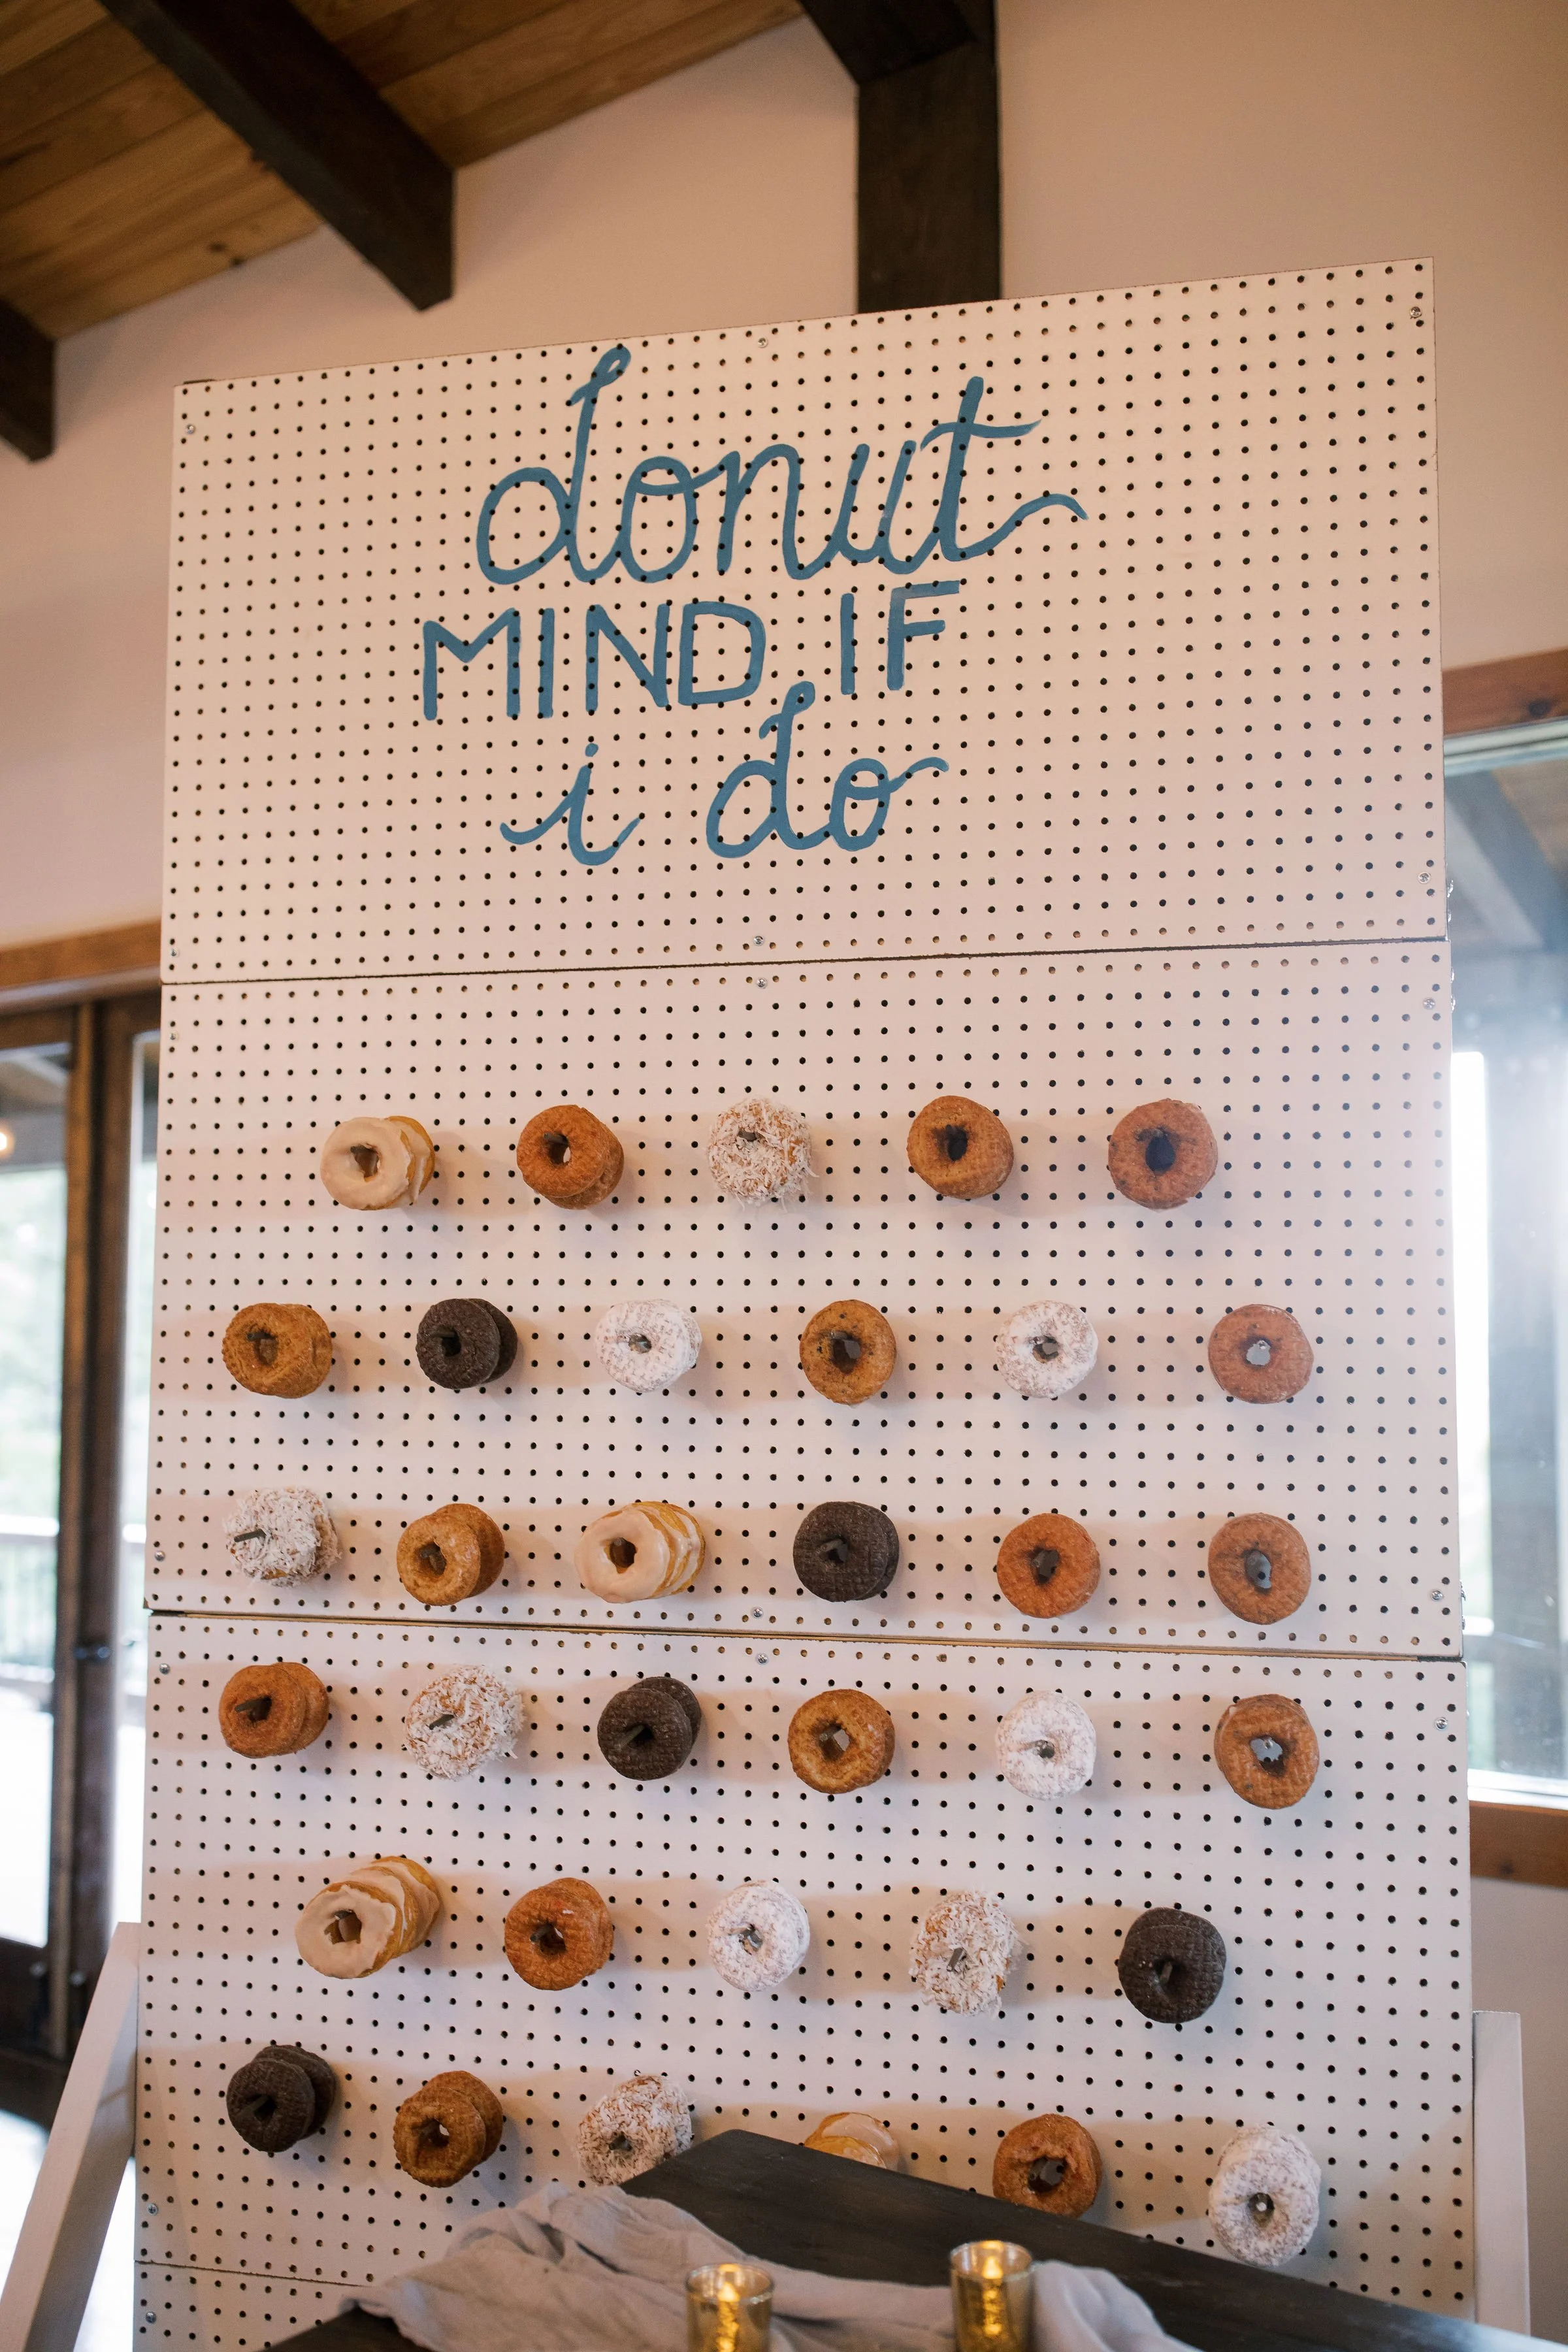 donut
MIND IF
i do